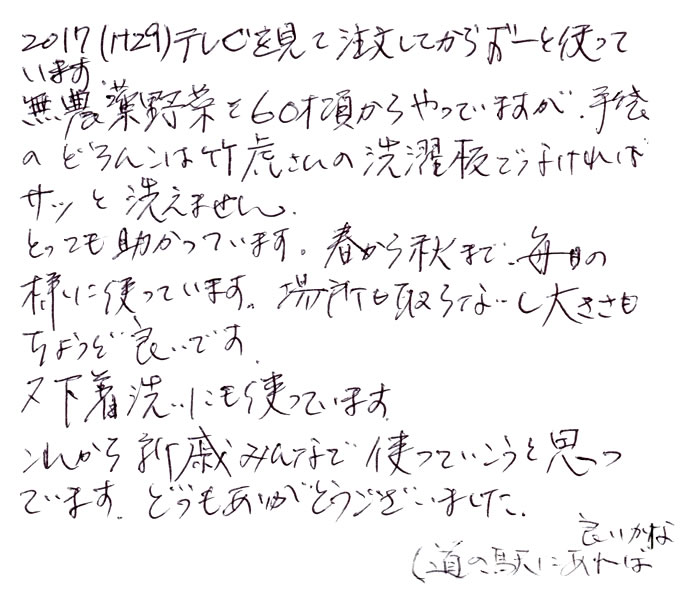 2017(H29)テレビを見て注文してからずーと使って
います。
無農薬野菜を60才頃からやっていますが、手袋
のどろんこは竹虎さんの洗濯板でなければ
サッと洗えません。
とっても助かっています。春から秋まで、毎日の
様に使っています。場所も取らないし大きさも
ちょうど良いです。
又下着洗いにも使っています。
これから親戚みんなで使っていこうと思っ
ています。どうもありがとうございました。
良いかな
(道の駅にあれば